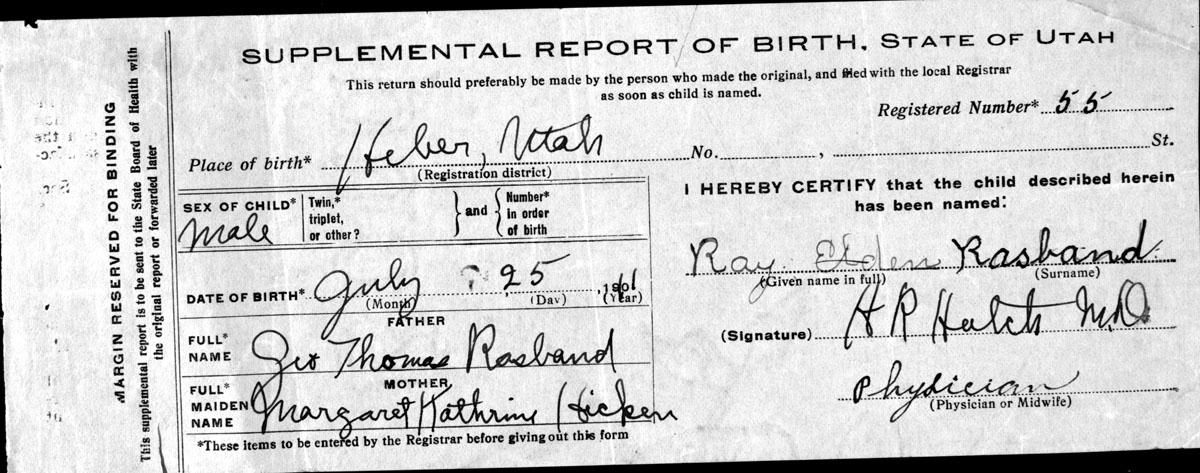 SUPPLEMENTAL REPORT OF BIRTH, STATE OF UTAH
This return should preferably be made by the person who made the original, and filed with the local Registrar
as soon as child is named.
Registered Number* 55
Place of birth* Heber, Utah No. , St.
(Registration district)
I HEREBY CERTIFY that the child described herein
has been named:
SEX OF CHILD* Male
Twin,*
triplet,
or other?
and
Number*
in order
of birth
Ray Elden Rasband
(Given name in full) (Surname)
DATE OF BIRTH* July 25, 19
(Month) (Day) (Year)
(Signature) H R Hatch M.D.
FATHER
FULL*
NAME Geo Thomas Rasband
Physician
(Physician or Midwife)
MOTHER
FULL*
MAIDEN
NAME Margaret Kathrine Hicken
*These items to be entered by the Registrar before giving out this form
MARGIN RESERVED FOR BINDING
This supplemental report is to be sent to the State Board of Health with
the original report or forwarded later